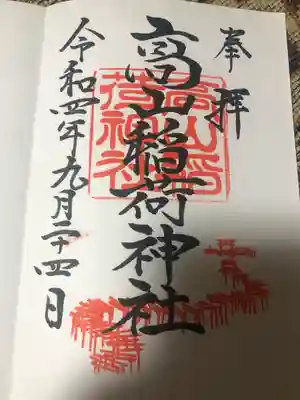 奉拝
高山稲荷神社
令和四年九月二十四日
高山稲荷神社